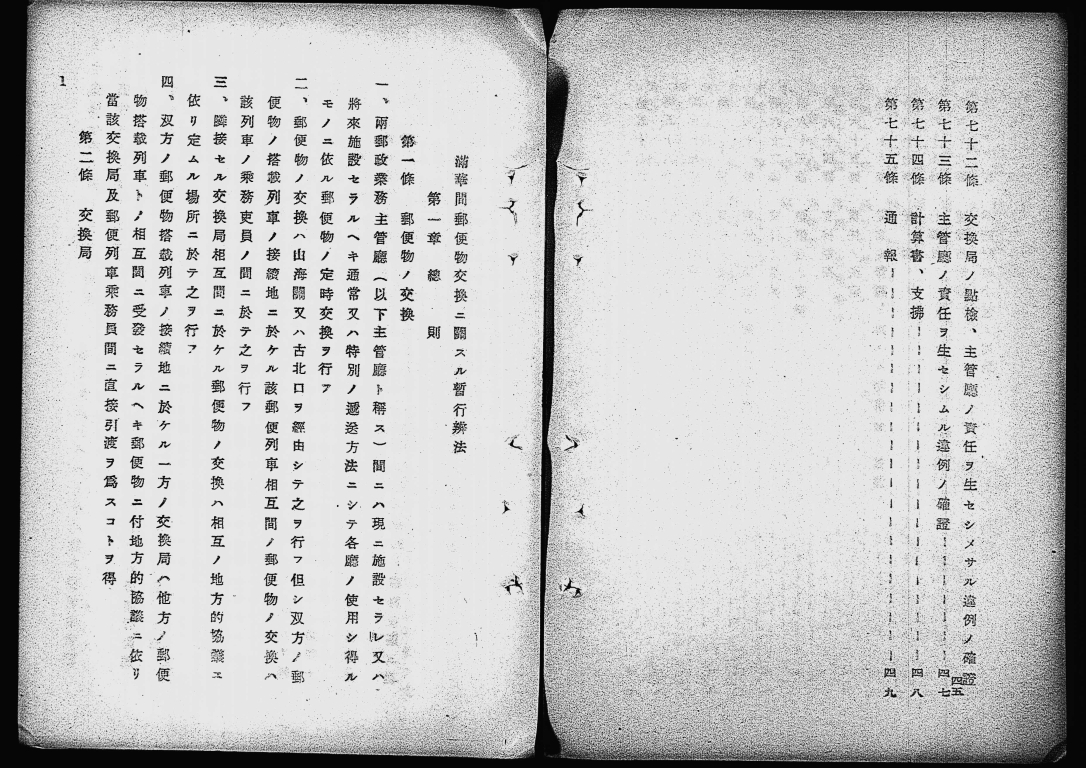 第七十二條　交換局ノ點檢、主管廳ノ責任ヲ生セシメサル違例ノ確證 四五
第七十三條　主管廳ノ責任ヲ生セシムル違例ノ確證 四七
第七十四條　計算書、支拂 四八
第七十五條　通報 四九
滿華間郵便物交換ニ關スル暫行辨法
第一章　總則
第一條　郵便物ノ交換
一、兩郵政業務主管廳（以下主管廳ト稱ス）間ニハ現ニ施設セラレ又ハ
將來施設セラルヘキ通常又ハ特別ノ遞送方法ニシテ各廳ノ使用シ得ル
モノニ依ル郵便物ノ定時交換ヲ行フ
二、郵便物ノ交換ハ山海關又ハ古北口ヲ經由シテ之ヲ行フ但シ双方ノ郵
便物ノ搭載列車ノ接續地ニ於ケル該郵便列車相互間ノ郵便物ノ交換ハ
該列車ノ乘務吏員ノ間ニ於テ之ヲ行フ
三、隣接セル交換局相互間ニ於ケル郵便物ノ交換ハ相互ノ地方的協議ニ
依リ定ムル場所ニ於テ之ヲ行フ
四、双方ノ郵便物搭載列車ノ接續地ニ於ケル一方ノ交換局ハ他方ノ郵便
物搭載列車トノ相互間ニ受發セラルヘキ郵便物ニ付地方的協議ニ依リ
當該交換局及郵便列車乘務員間ニ直接引渡ヲ爲スコトヲ得
第二條　交換局
1